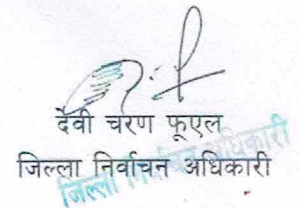 देवी चरण फूएल
जिल्ला निर्वाचन अधिकारी
जिल्ला निर्वाचन अधिकारी